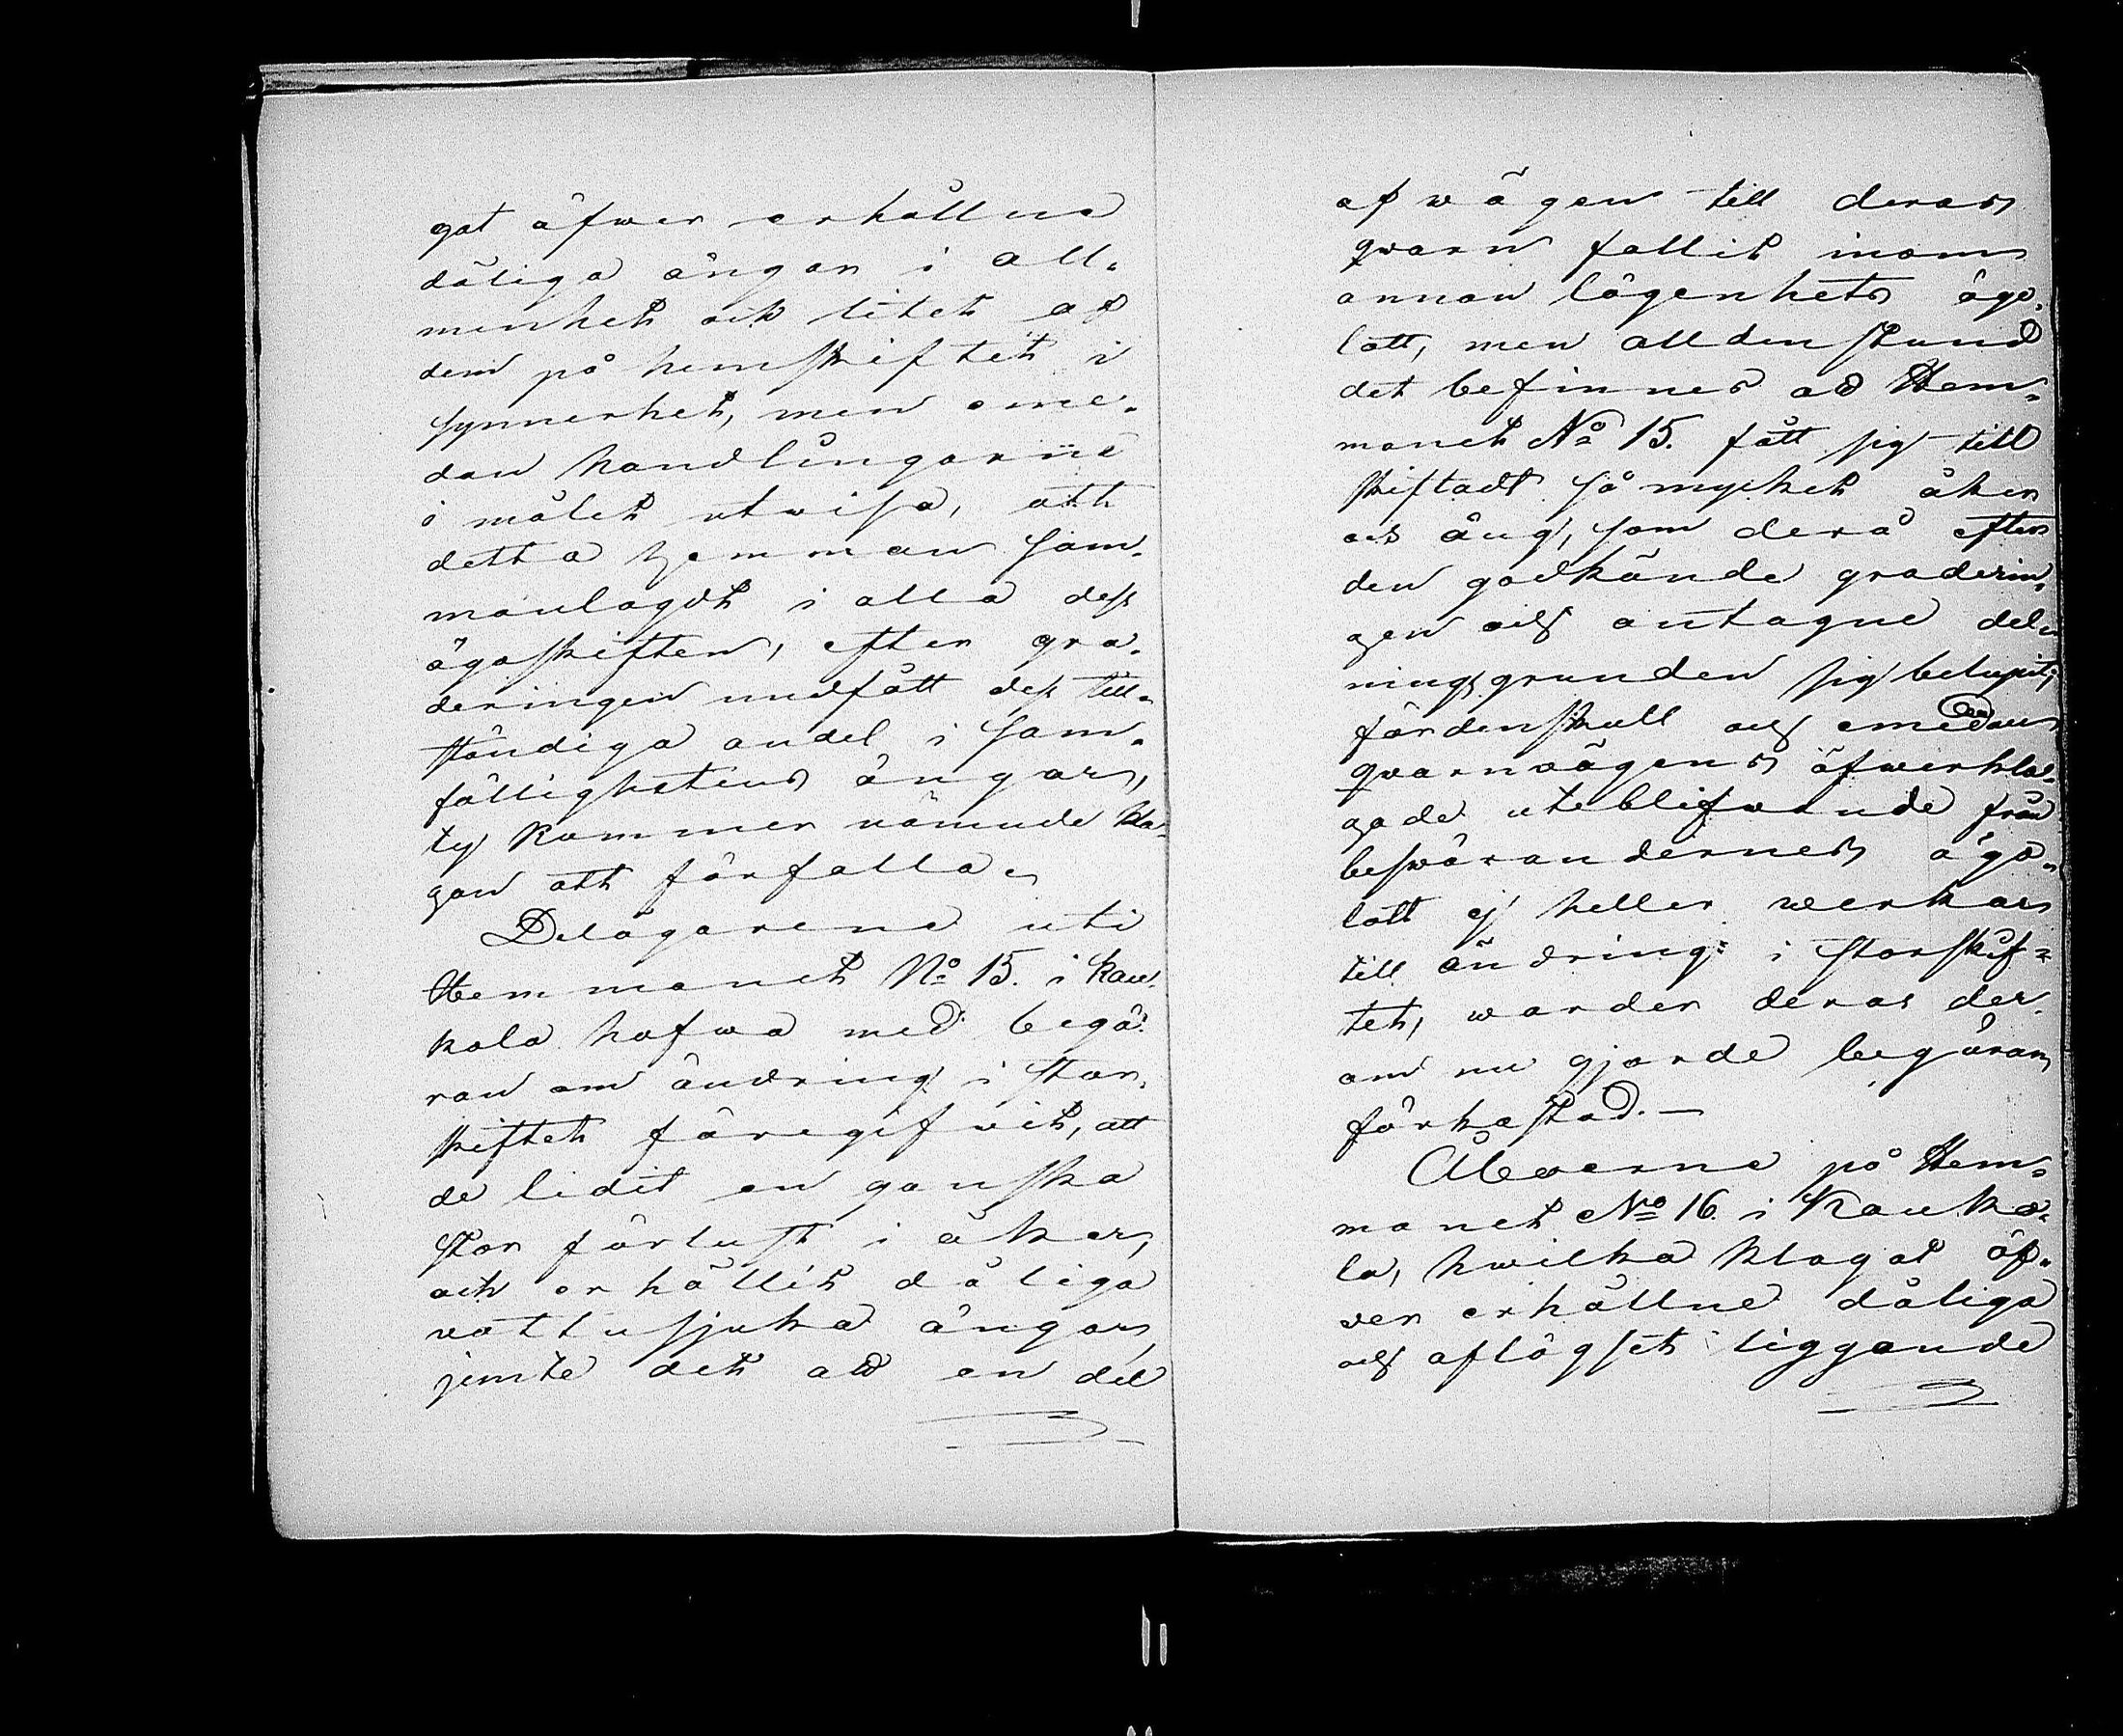 gat öfwer erhållna
dåliga ängar i all-
menhet och litet af
dem på hemskiftet i
synnerhet, men eme-
dan handlingarne
i målet utwisa, att
detta hemman sam-
manlagdt i alla dess
ägoskiften, efter gra-
deringen undfått dess till-
ständiga andel i sam-
fällighetens ängar,
ty kommer nämnde kla-
gan att förfalla.
Delägarene uti
Hemmanet No 15. i Kau-
kola hafwa med begä-
ran om ändring i stor-
skiftet föregifvit, att
de lidit en ganska
stor förlust i åker,
och erhållit dåliga
vattusjuka ängar,
jemte det att en del
af wägen till deras
qvarn fallit inom
annan lägenhets ägo-
lott, men alldenstund
det befinnes att Hem-
manet No 15. fått sig till
skiftadt så mycket åker
och äng, som derå efter
den godkände graderin-
gen och antagne del-
ningsgrunden sig belupit,
fördenskull och emedan
den
qvarnvägens öfwerkla-
gade uteblifwande från
beswärandernes ägo-
lott ej heller werkar
till ändring i storskif-
tet, warder deras der-
om nu gjorde begäran
förkastad. —
Åboerne på Hem-
manet No 16. i Kauko-
la, hwilka klagat öf-
ver erhållne dåliga
och aflägset liggande